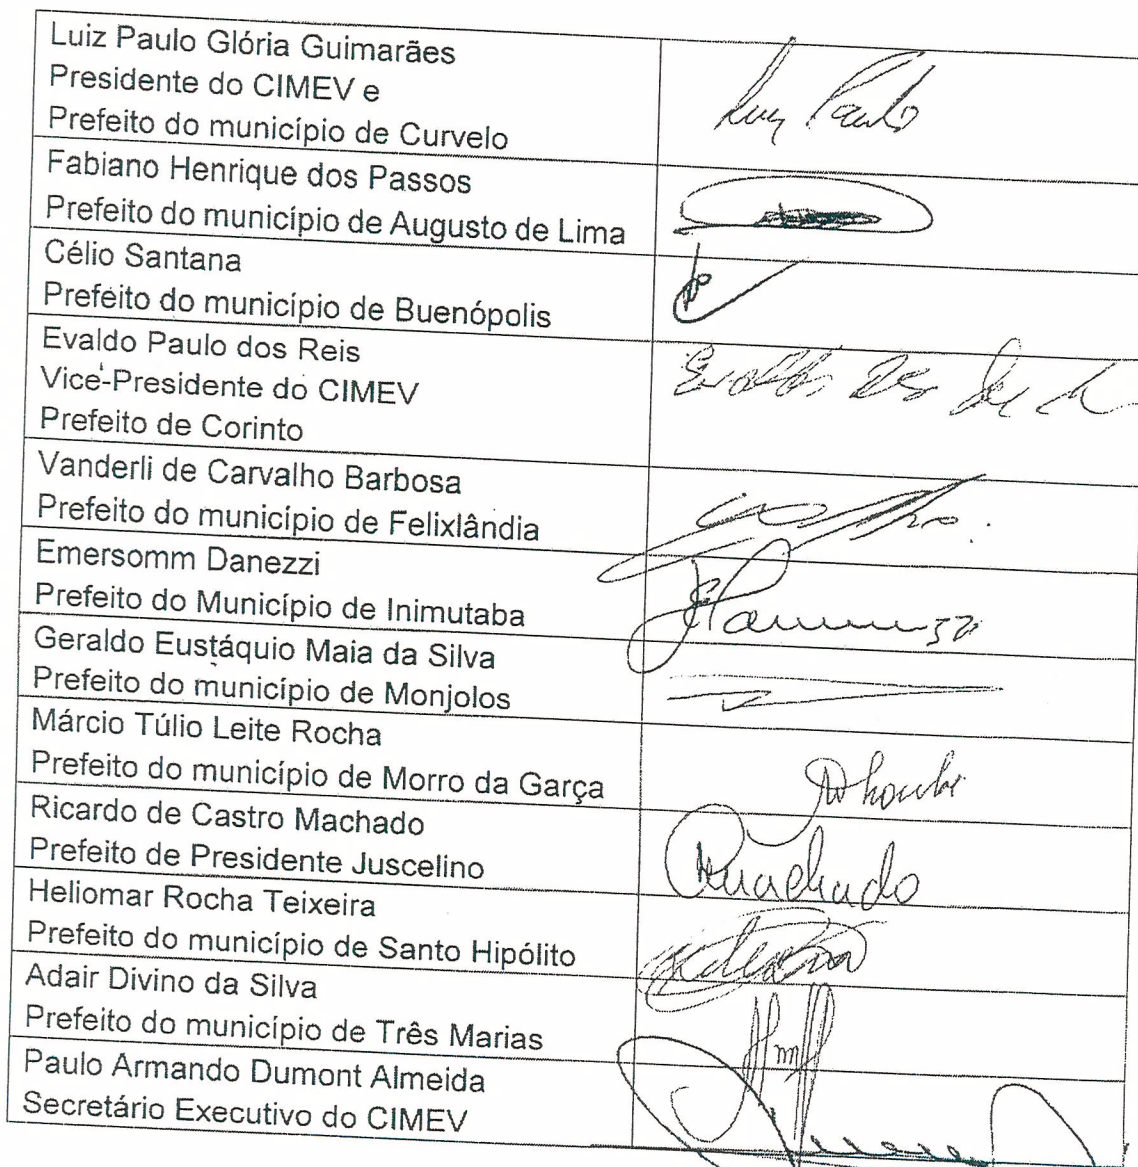 Luiz Paulo Glória Guimarães
Presidente do CIMEV e
Prefeito do município de Curvelo
Luiz Paulo
Fabiano Henrique dos Passos
Prefeito do município de Augusto de Lima
Célio Santana
Prefeito do município de Buenópolis
Evaldo Paulo dos Reis
Vice-Presidente do CIMEV
Prefeito de Corinto
Vanderli de Carvalho Barbosa
Prefeito do município de Felixlândia
Emersomm Danezzi
Prefeito do Município de Inimutaba
Geraldo Eustáquio Maia da Silva
Prefeito do município de Monjolos
Márcio Túlio Leite Rocha
Prefeito do município de Morro da Garça
Ricardo de Castro Machado
Prefeito de Presidente Juscelino
RMachado
Heliomar Rocha Teixeira
Prefeito do município de Santo Hipólito
Adair Divino da Silva
Prefeito do município de Três Marias
Paulo Armando Dumont Almeida
Secretário Executivo do CIMEV